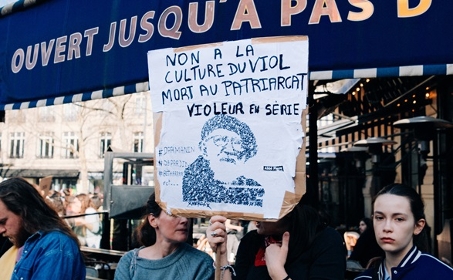 OUVERT JUSQU'À PAS D
NON A LA
CULTURE DU VIOL
MORT AU PATRIARCAT
VIOLEUR EN SÉRIE